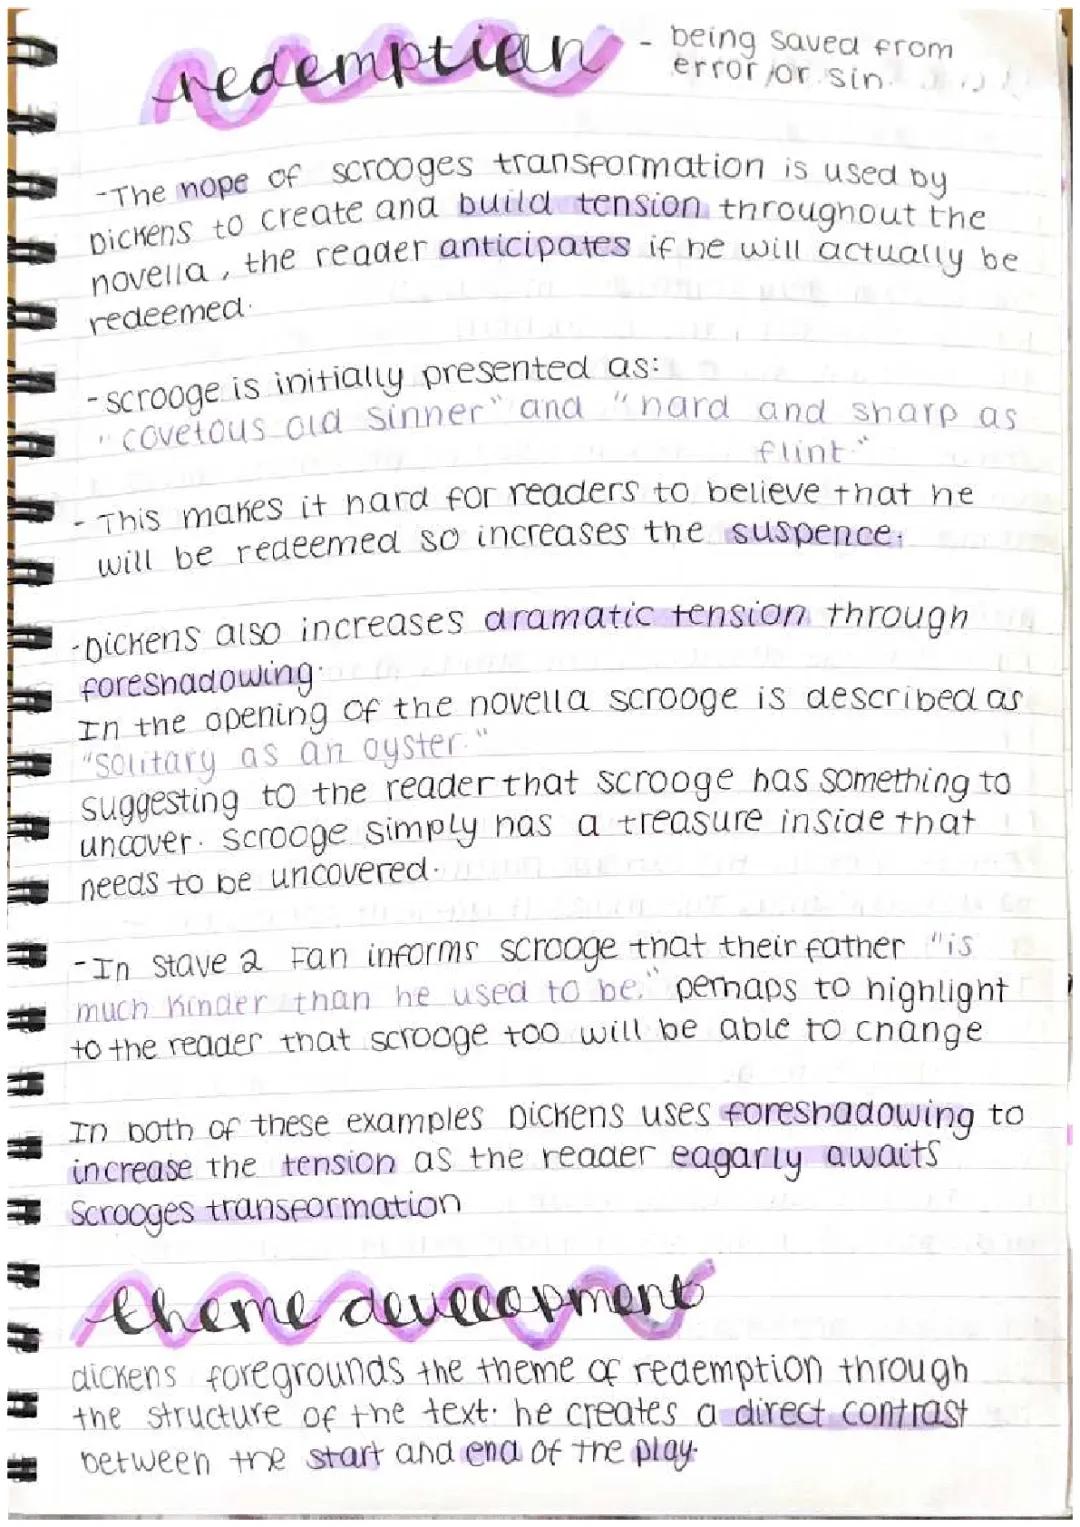 redemption - being saved from
error/or sin.
-The hope of scrooges transformation is used by
Dickens to create and build tension throughout the
novella, the reader anticipates if he will actually be
redeemed.
-scrooge is initially presented as:
"covetous old sinner" and "hard and sharp as
flint."
- This makes it hard for readers to believe that he
will be redeemed so increases the suspence.
-Dickens also increases dramatic tension through
foreshadowing.
In the opening of the novella scrooge is described as
"solitary as an oyster."
suggesting to the reader that scrooge has something to
uncover. scrooge simply has a treasure inside that
needs to be uncovered.
-In stave 2 Fan informs scrooge that their father "is
much kinder than he used to be." perhaps to highlight
to the reader that scrooge too will be able to change
In both of these examples Dickens uses foreshadowing to
increase the tension as the reader eagarly awaits
Scrooges transformation
theme development
dickens foregrounds the theme of redemption through
the structure of the text. he creates a direct contrast
between the start and end of the play.